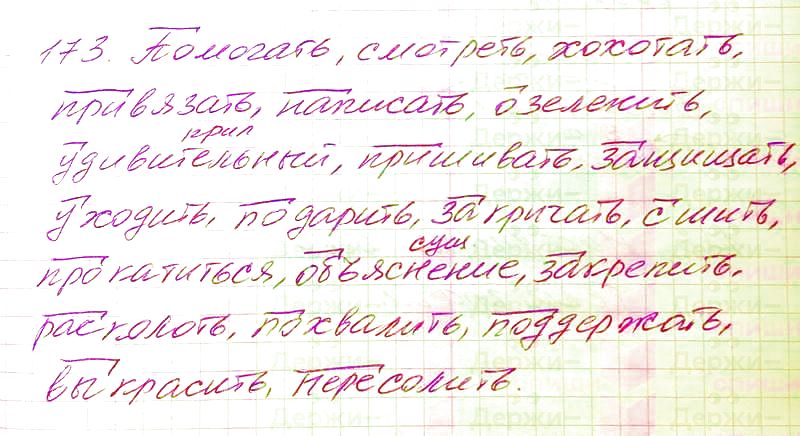 173. Помогать, смотреть, хохотать,
привязать, написать, озеленить,
прил
удивительный, пришивать, защищать,
уходить, подарить, закричать, сшить,
сущ
прокатиться, объяснение, закрепить,
расколоть, похвалить, поддержать,
выкрасить, пересолить.